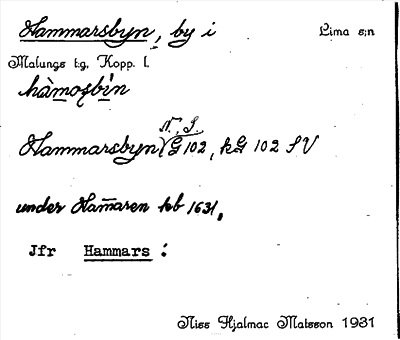 Hammarsbyn, by i Lima s:n
Malungs t:g, Kopp. l.
hàmosbín
N., S.
Hammarsbyn G 102, kG 102 SV
under Ham̄aren kb 1631,
Jfr Hammars :
Niss Hjalmar Matsson 1931